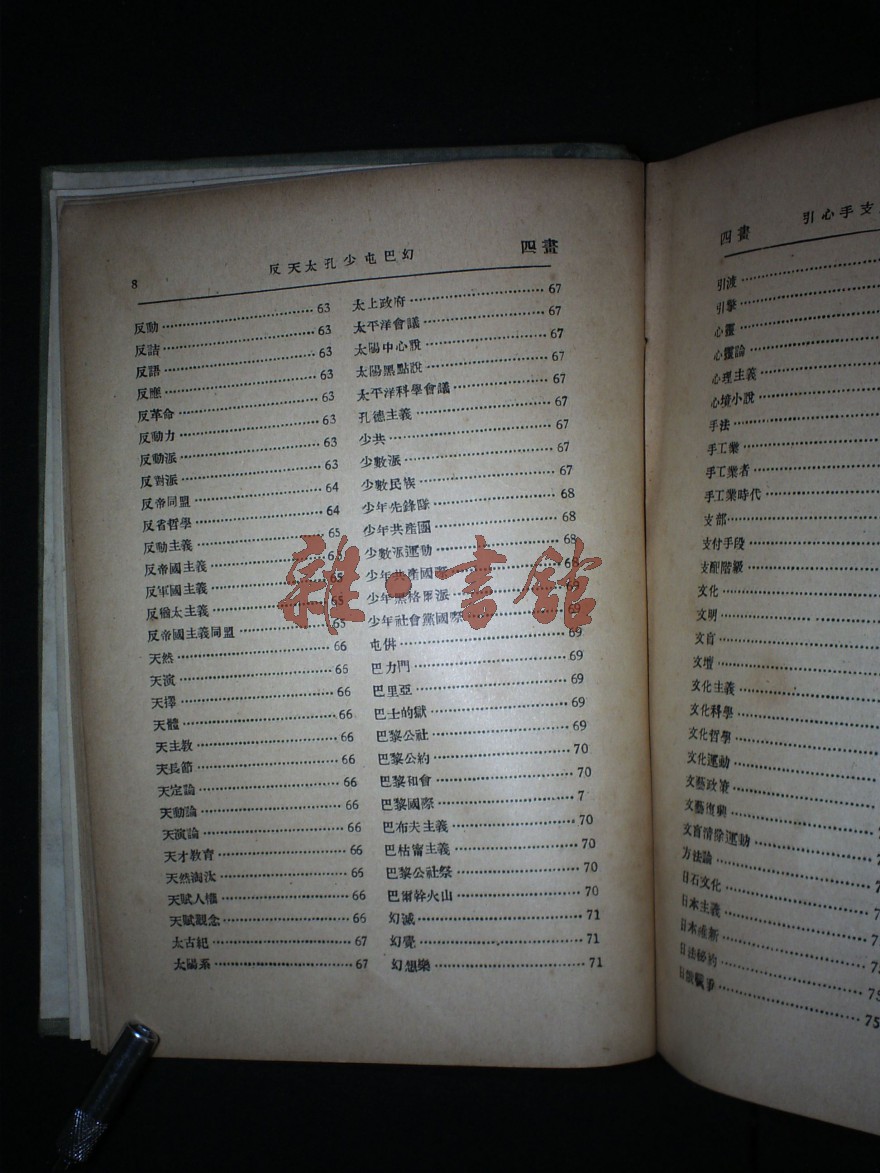 8
反天太孔少屯巴幻
四畫
反動 63
反詰 63
反語 63
反應 63
反革命 63
反動力 63
反動派 63
反對派 63
反帝同盟 64
反省哲學 64
反動主義 65
反帝國主義 65
反軍國主義 65
反猶太主義 65
反帝國主義同盟 65
天然 66
天演 66
天擇 66
天體 66
天主教 66
天長節 66
天定論 66
天動論 66
天演論 66
天才教育 66
天然淘汰 66
天賦人權 66
天賦觀念 66
太古紀 67
太陽系 67
太上政府 67
太平洋會議 67
太陽中心說 67
太陽黑點說 67
太平洋科學會議 67
孔德主義 67
少共 67
少數派 67
少數民族 67
少年先鋒隊 68
少年共產團 68
少數派運動 68
少年共產國際 68
少年黑格爾派 69
少年社會黨國際 69
屯併 69
巴力門 69
巴里亞 69
巴士的獄 69
巴黎公社 69
巴黎公約 70
巴黎和會 70
巴黎國際 7
巴布夫主義 70
巴枯甯主義 70
巴黎公社祭 70
巴爾幹火山 70
幻滅 71
幻覺 71
幻想樂 71
雜·書館
四畫
引心手支
引波
引擎
心靈
心靈論
心理主義
心境小說
手法
手工業
手工業者
手工業時代
支部
支付手段
支配階級
文化
文明
文盲
文壇
文化主義
文化科學
文化哲學
文化運動
文藝政策
文藝復興
文盲清除運動
方法論
日石文化
日本主義
日本產新
日法秘約
日俄戰爭 75